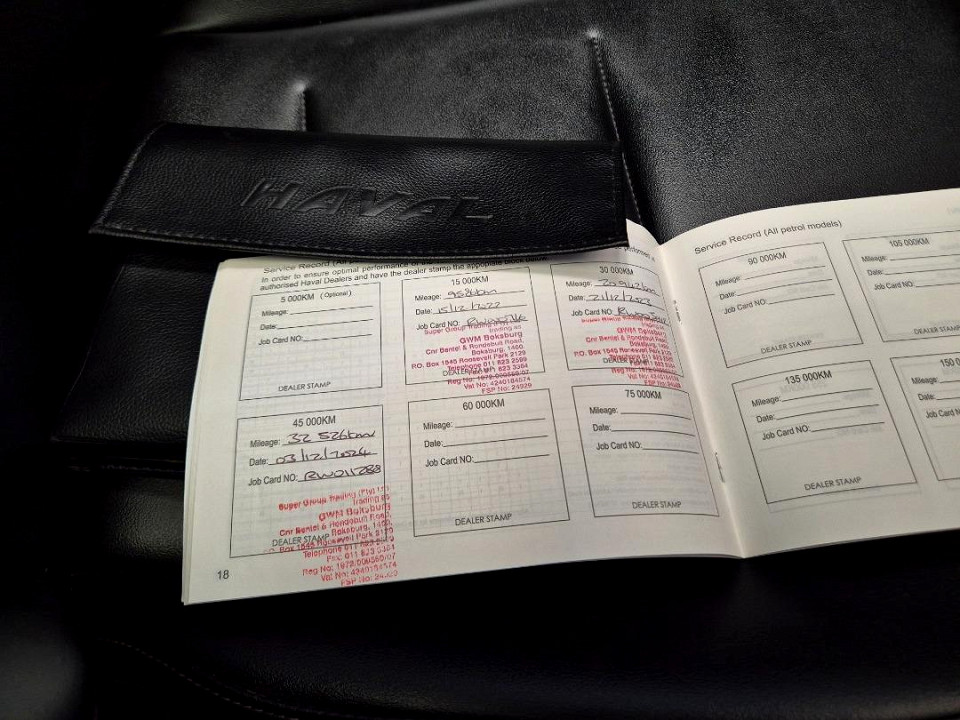 HAVAL
Service Record (All
In order to ensure optimal performance of
authorised Haval Dealers and have the dealer stamp the appopiate block below.
5 000KM (Optional)
Mileage:
Date:
Job Card NO:
DEALER STAMP
15 000KM
Mileage: 9586km
Date: 15/12/2022
Job Card NO:
Super Group Trading (Pty) Ltd
trading as
GWM Boksburg
Cnr Bentel & Rondebult Road,
Boksburg, 1460.
P.O. Box 1645 Roosevelt Park 2129
Telephone 011 823 2599
DEALER STAMP
Fax: 011 823 3364
Reg No: 1972/000560/07
Vat No: 4240184574
FSP No: 24929
30 000KM
Mileage:
Date: 21/12/2023
Job Card NO:
GWM Boksburg
Cnr Bentel & Rondebult Road,
Boksburg, 1460.
P.O. Box 1645 Roosevelt Park 2129
DEALER
45 000KM
Mileage: 32 526km
Date: 03/12/2024
Job Card NO: RW011288
Super Group Trading (Pty) Ltd
trading as
GWM Boksburg
Cnr Bentel & Rondebult Road,
Boksburg, 1460.
DEALER STAMP
P.O. Box 1645 Roosevelt Park 2129
Telephone 011 823 2599
Fax: 011 823 3364
Reg No: 1972/000560/07
Vat No: 4240184574
FSP No:
60 000KM
Mileage:
Date:
Job Card NO:
DEALER STAMP
75 000KM
Mileage:
Date:
Job Card NO:
DEALER STAMP
18
Service Record (All petrol models)
90 000KM
Mileage:
Date:
Job Card NO:
DEALER STAMP
105 000KM
Mileage:
Date:
Job Card NO:
DEALER
135 000KM
Mileage:
Date:
Job Card NO:
DEALER STAMP
150 0
Mileage:
Date:
Job Card NO